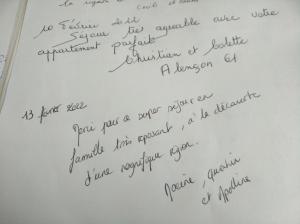 10 Février 2022
Séjour très agréable avec votre
appartement parfait
Christian et Colette
Alençon 61
13 février 2022
Merci pour ce super séjour en
famille très reposant, à la découverte
d'une magnifique région.
Maxine, Quentin
et Apolline